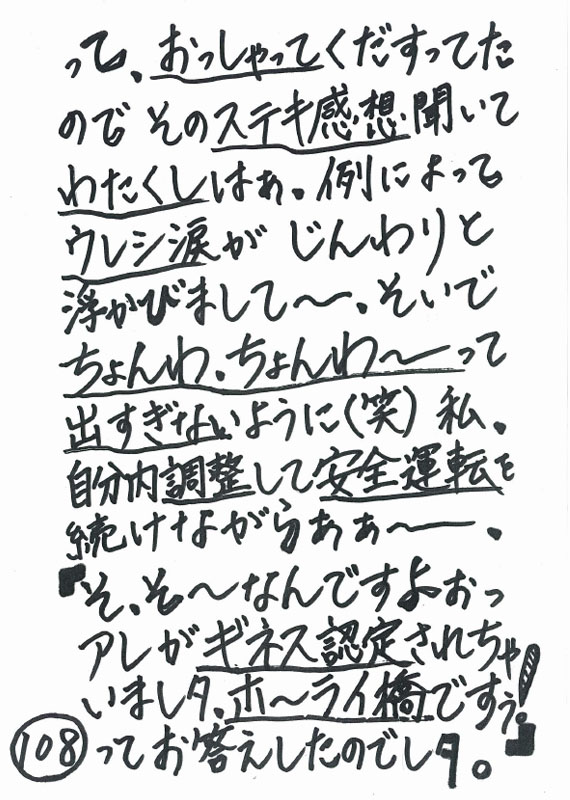 って、おっしゃってくだすってた
ので そのステキ感想聞いて
わたくしはぁ。例によって
ウレシ涙が じんわりと
浮かびまして〜、そいで
ちょんわ、ちょんわ〜って
出すぎないように(笑) 私、
自分内調整して安全運転を
続けながらぁぁ〜、
『そ、そ〜なんですよおっ
アレがギネス認定されちゃ
いましタ、ホ〜ライ橋ですぅ!』
108 ってお答えしたのでしタ。